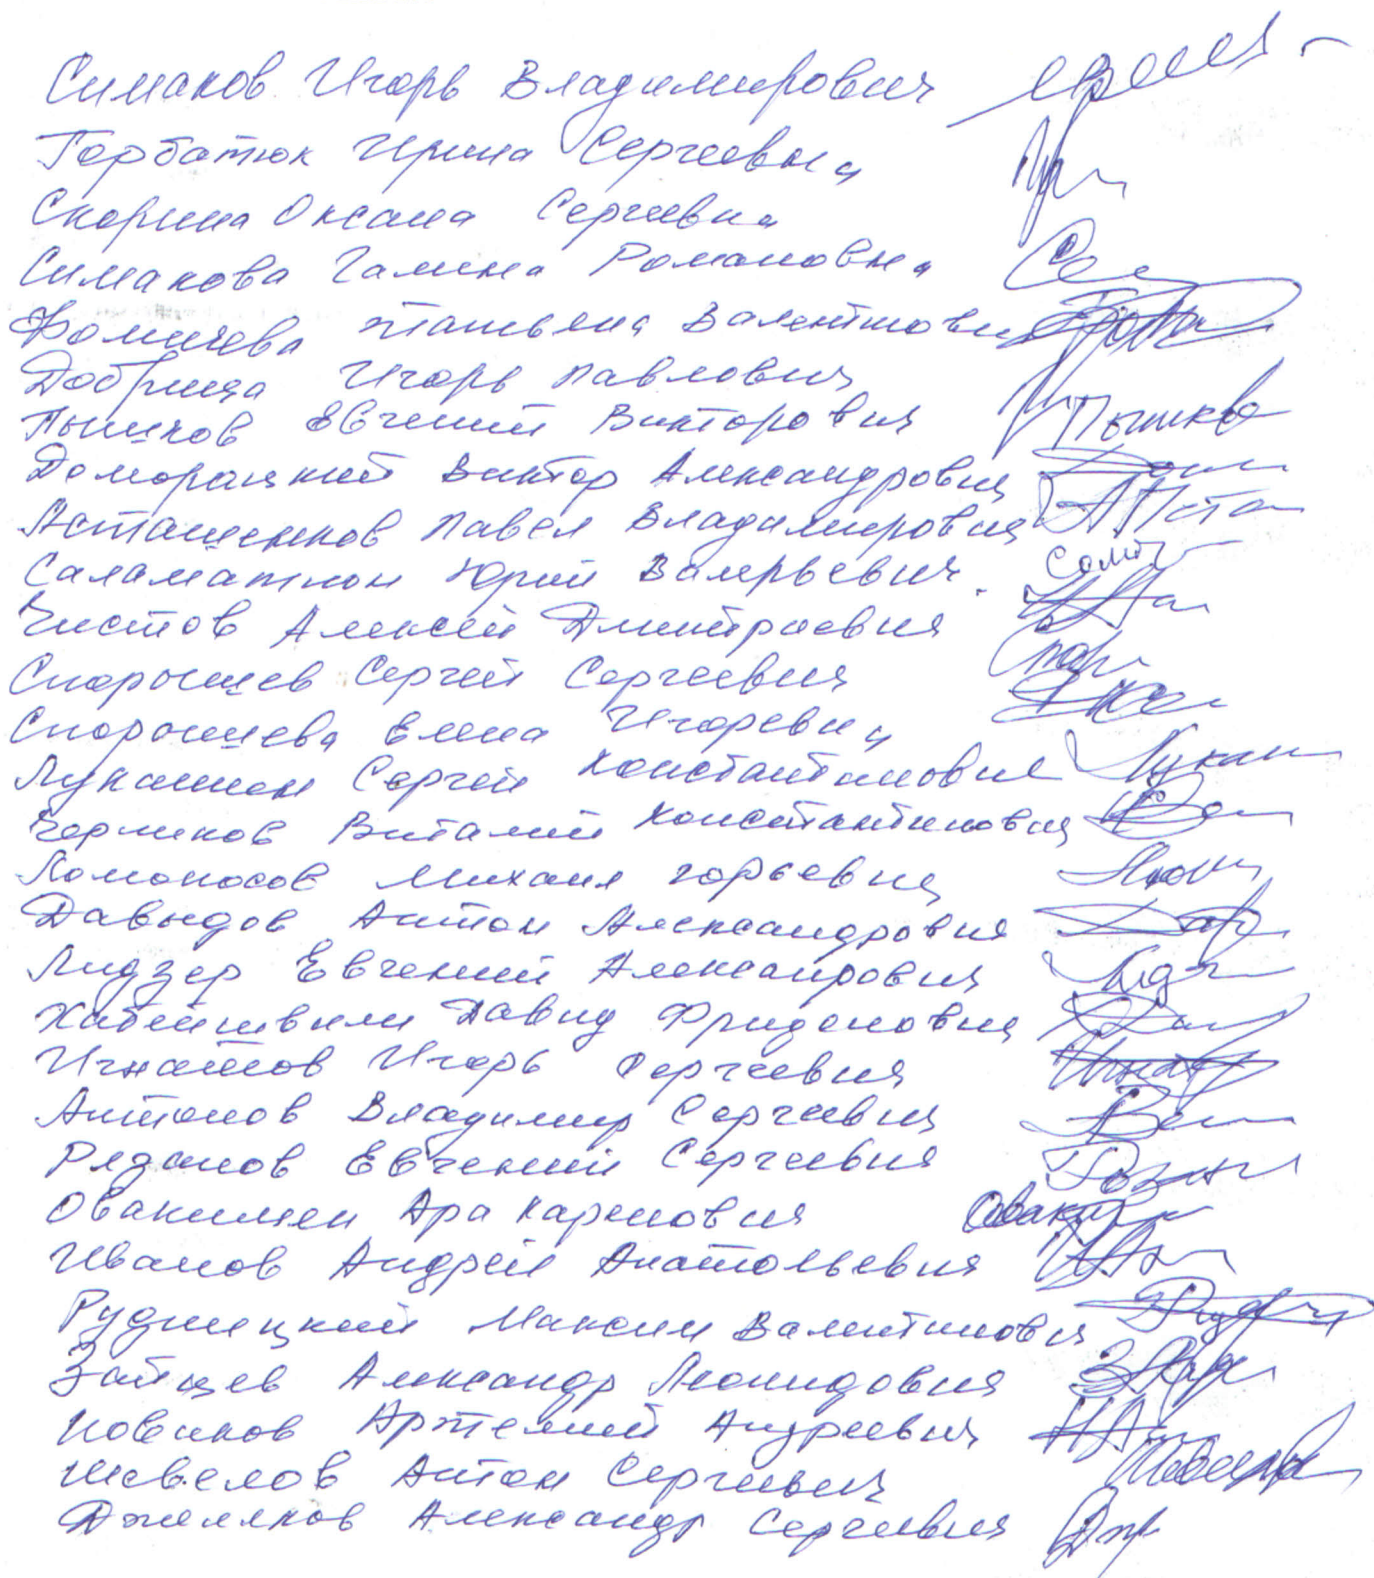 Симаков Игорь Владимирович
Горбатюк Ирина Сергеевна
Скорина Оксана Сергеевна
Симакова Галина Романовна
Фомичева Татьяна Валентиновн
Добрица Игорь Павлович
Пышков Евгений Викторович Пышков
Доморацкий Виктор Александрович
Асташенков Павел Владимирович
Саламаткин Юрий Валерьевич
Чистов Алексей Дмитриевич
Скорышев Сергей Сергеевич
Скорышева Елена Игоревна
Лукашин Сергей Константинович
Черликов Виталий Константинович
Ломоносов Михаил Юрьевич
Давыдов Антон Александрович
Лидзер Евгений Александрович
Хабейшвили Давид Фридонович
Игнатов Игорь Сергеевич
Антонов Владимир Сергеевич
Рязанов Евгений Сергеевич
Овакимян Ара Каренович
Иванов Андрей Анатольевич
Рудницкий Максим Валентинович
Зайцев Александр Леонидович
Новиков Артемий Андреевич
Шевелов Антон Сергеевич
Джемяков Александр Сергеевич